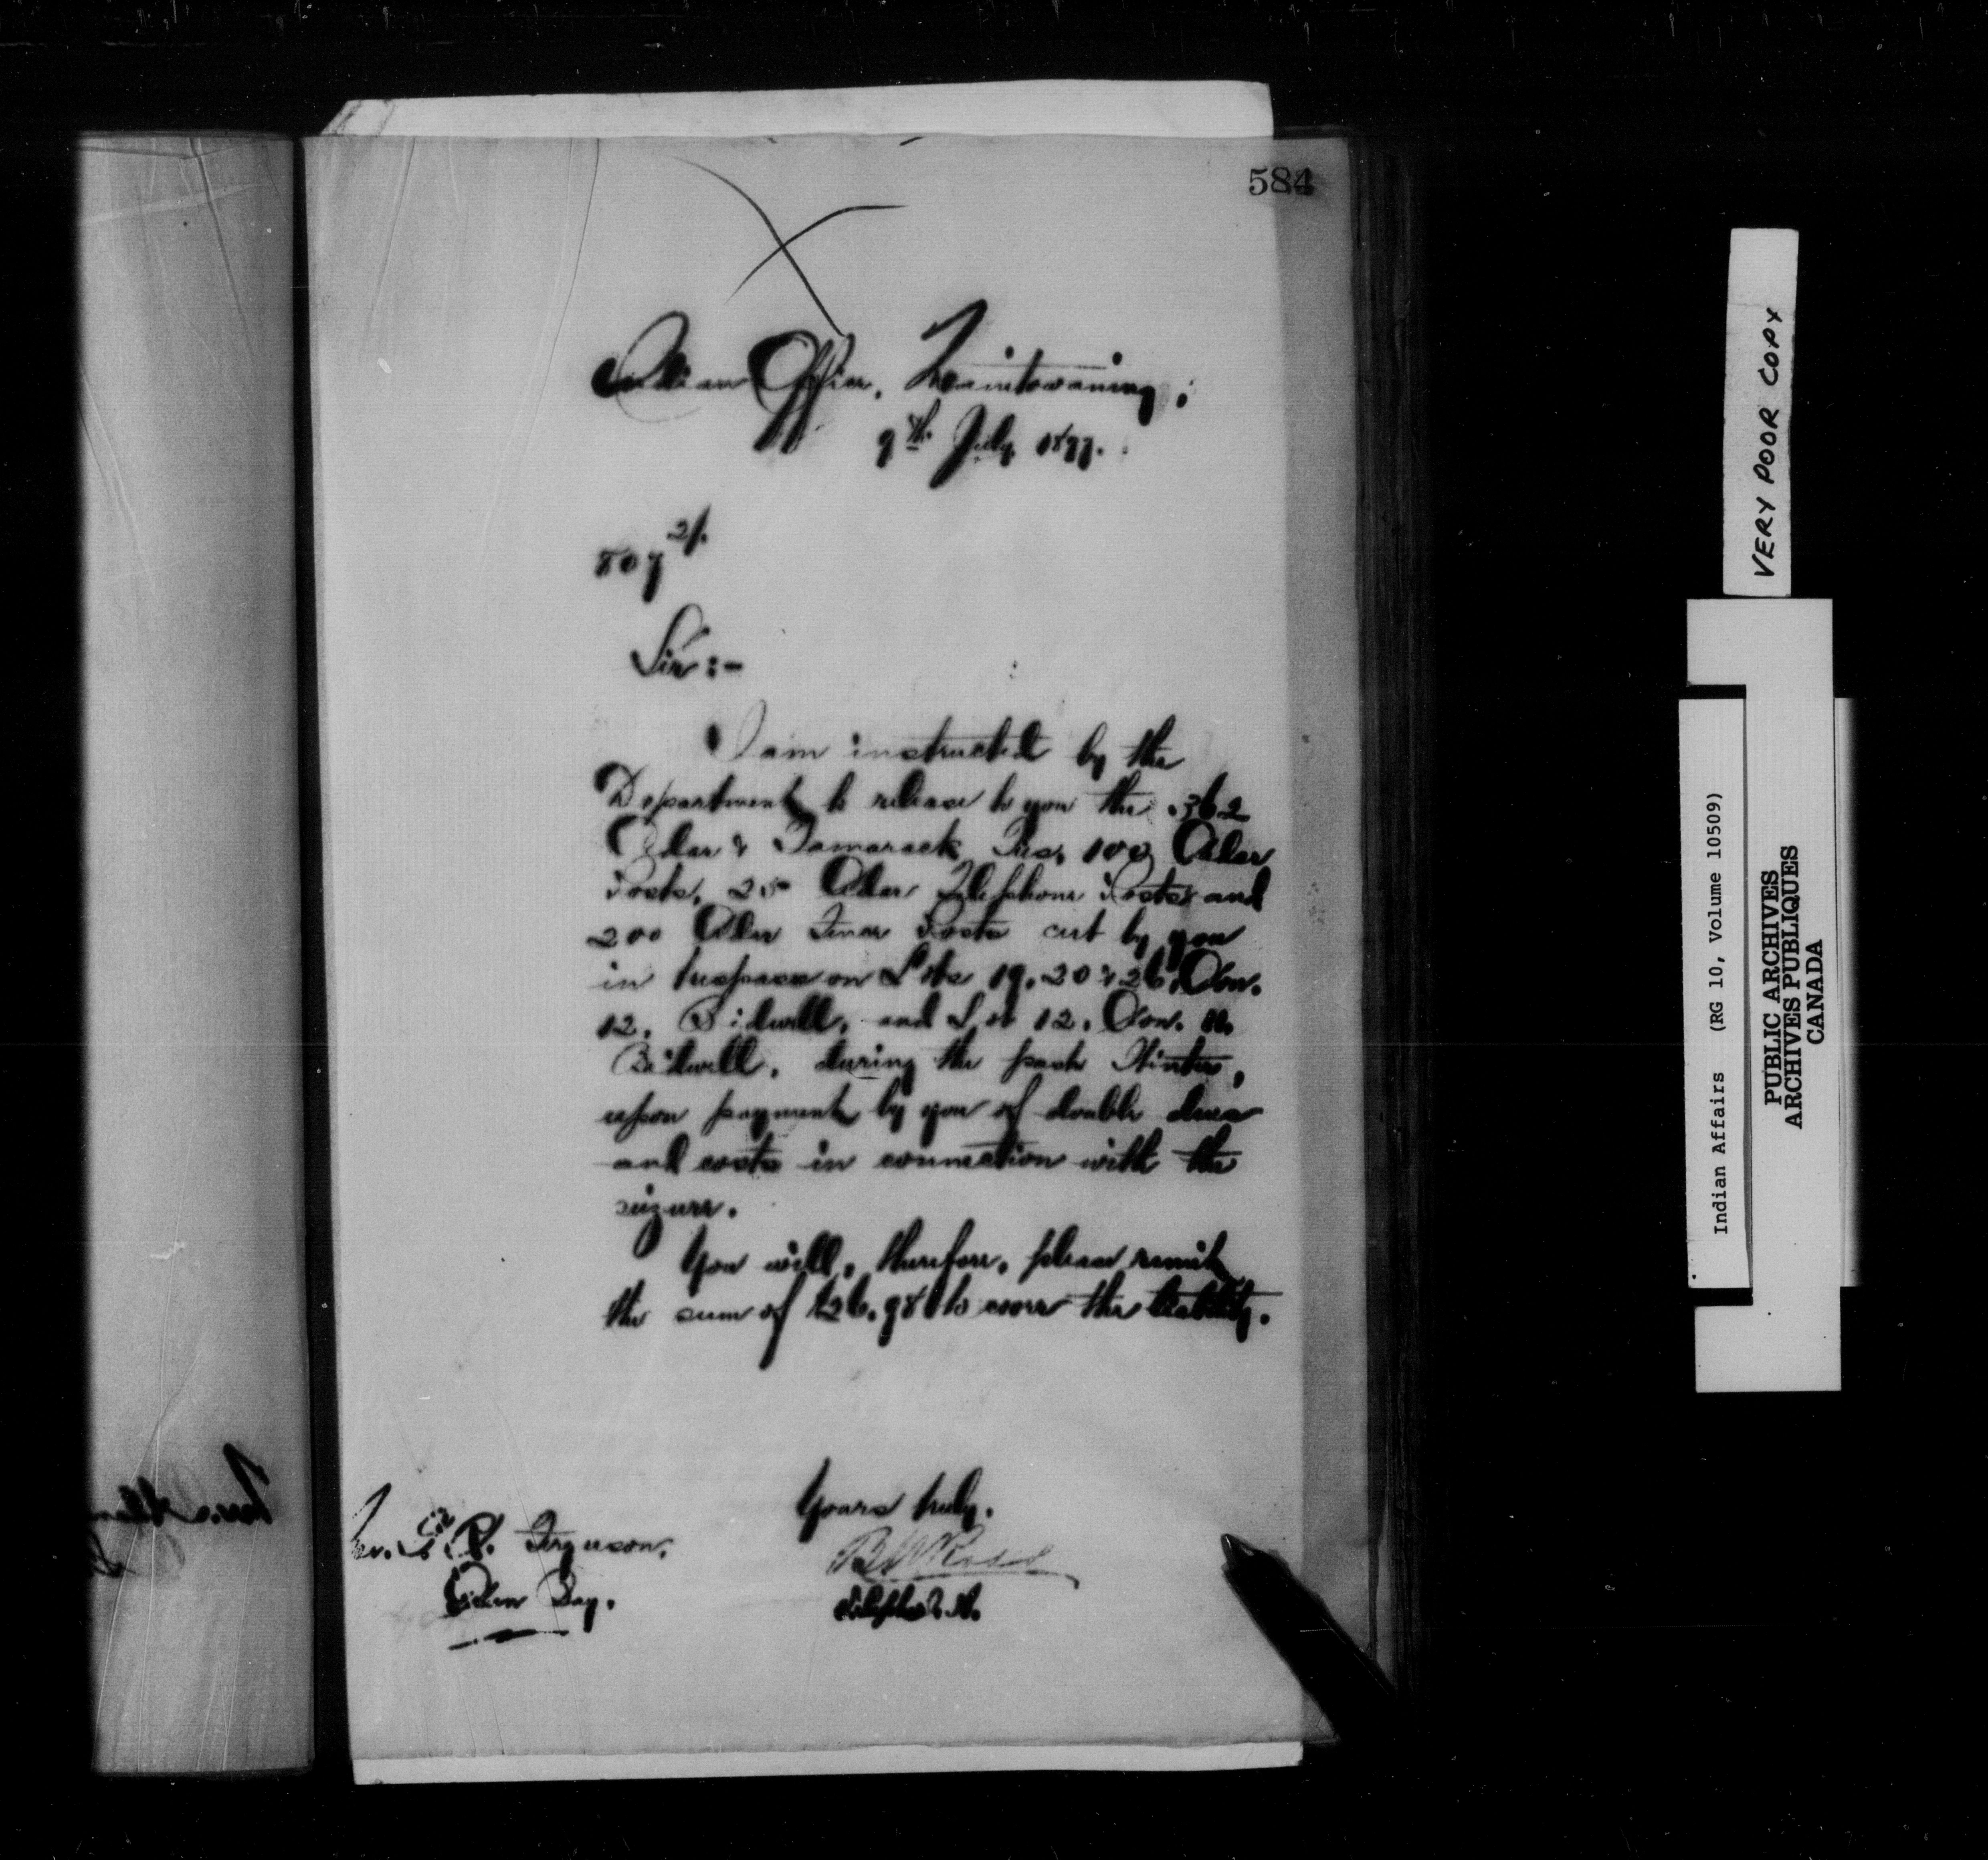 584
Indian Office, Manitowaning;
9th July 1897.
807 2/.
Sir:-
I am instructed by the
Department to release to you the 362
Cedar & Tamarack Ties, 100 Cedar
Posts, 25 Cedar Telephone Posts and
200 Cedar Fence Posts cut by you
in trespass on Lots 19, 20 & 26, Con.
12, Bidwell, and Lot 12, Con. 11.
Bidwell, during the past Winter,
upon payment by you of double dues
and costs in connection with the
seizure.
You will, therefore, please remit
the sum of $26.98 to cover the liability.
Yours truly,
B W Ross
P. Ferguson,
Bay.
VERY POOR COPY
Indian Affairs (RG 10, Volume 10509)
PUBLIC ARCHIVES
ARCHIVES PUBLIQUES
CANADA